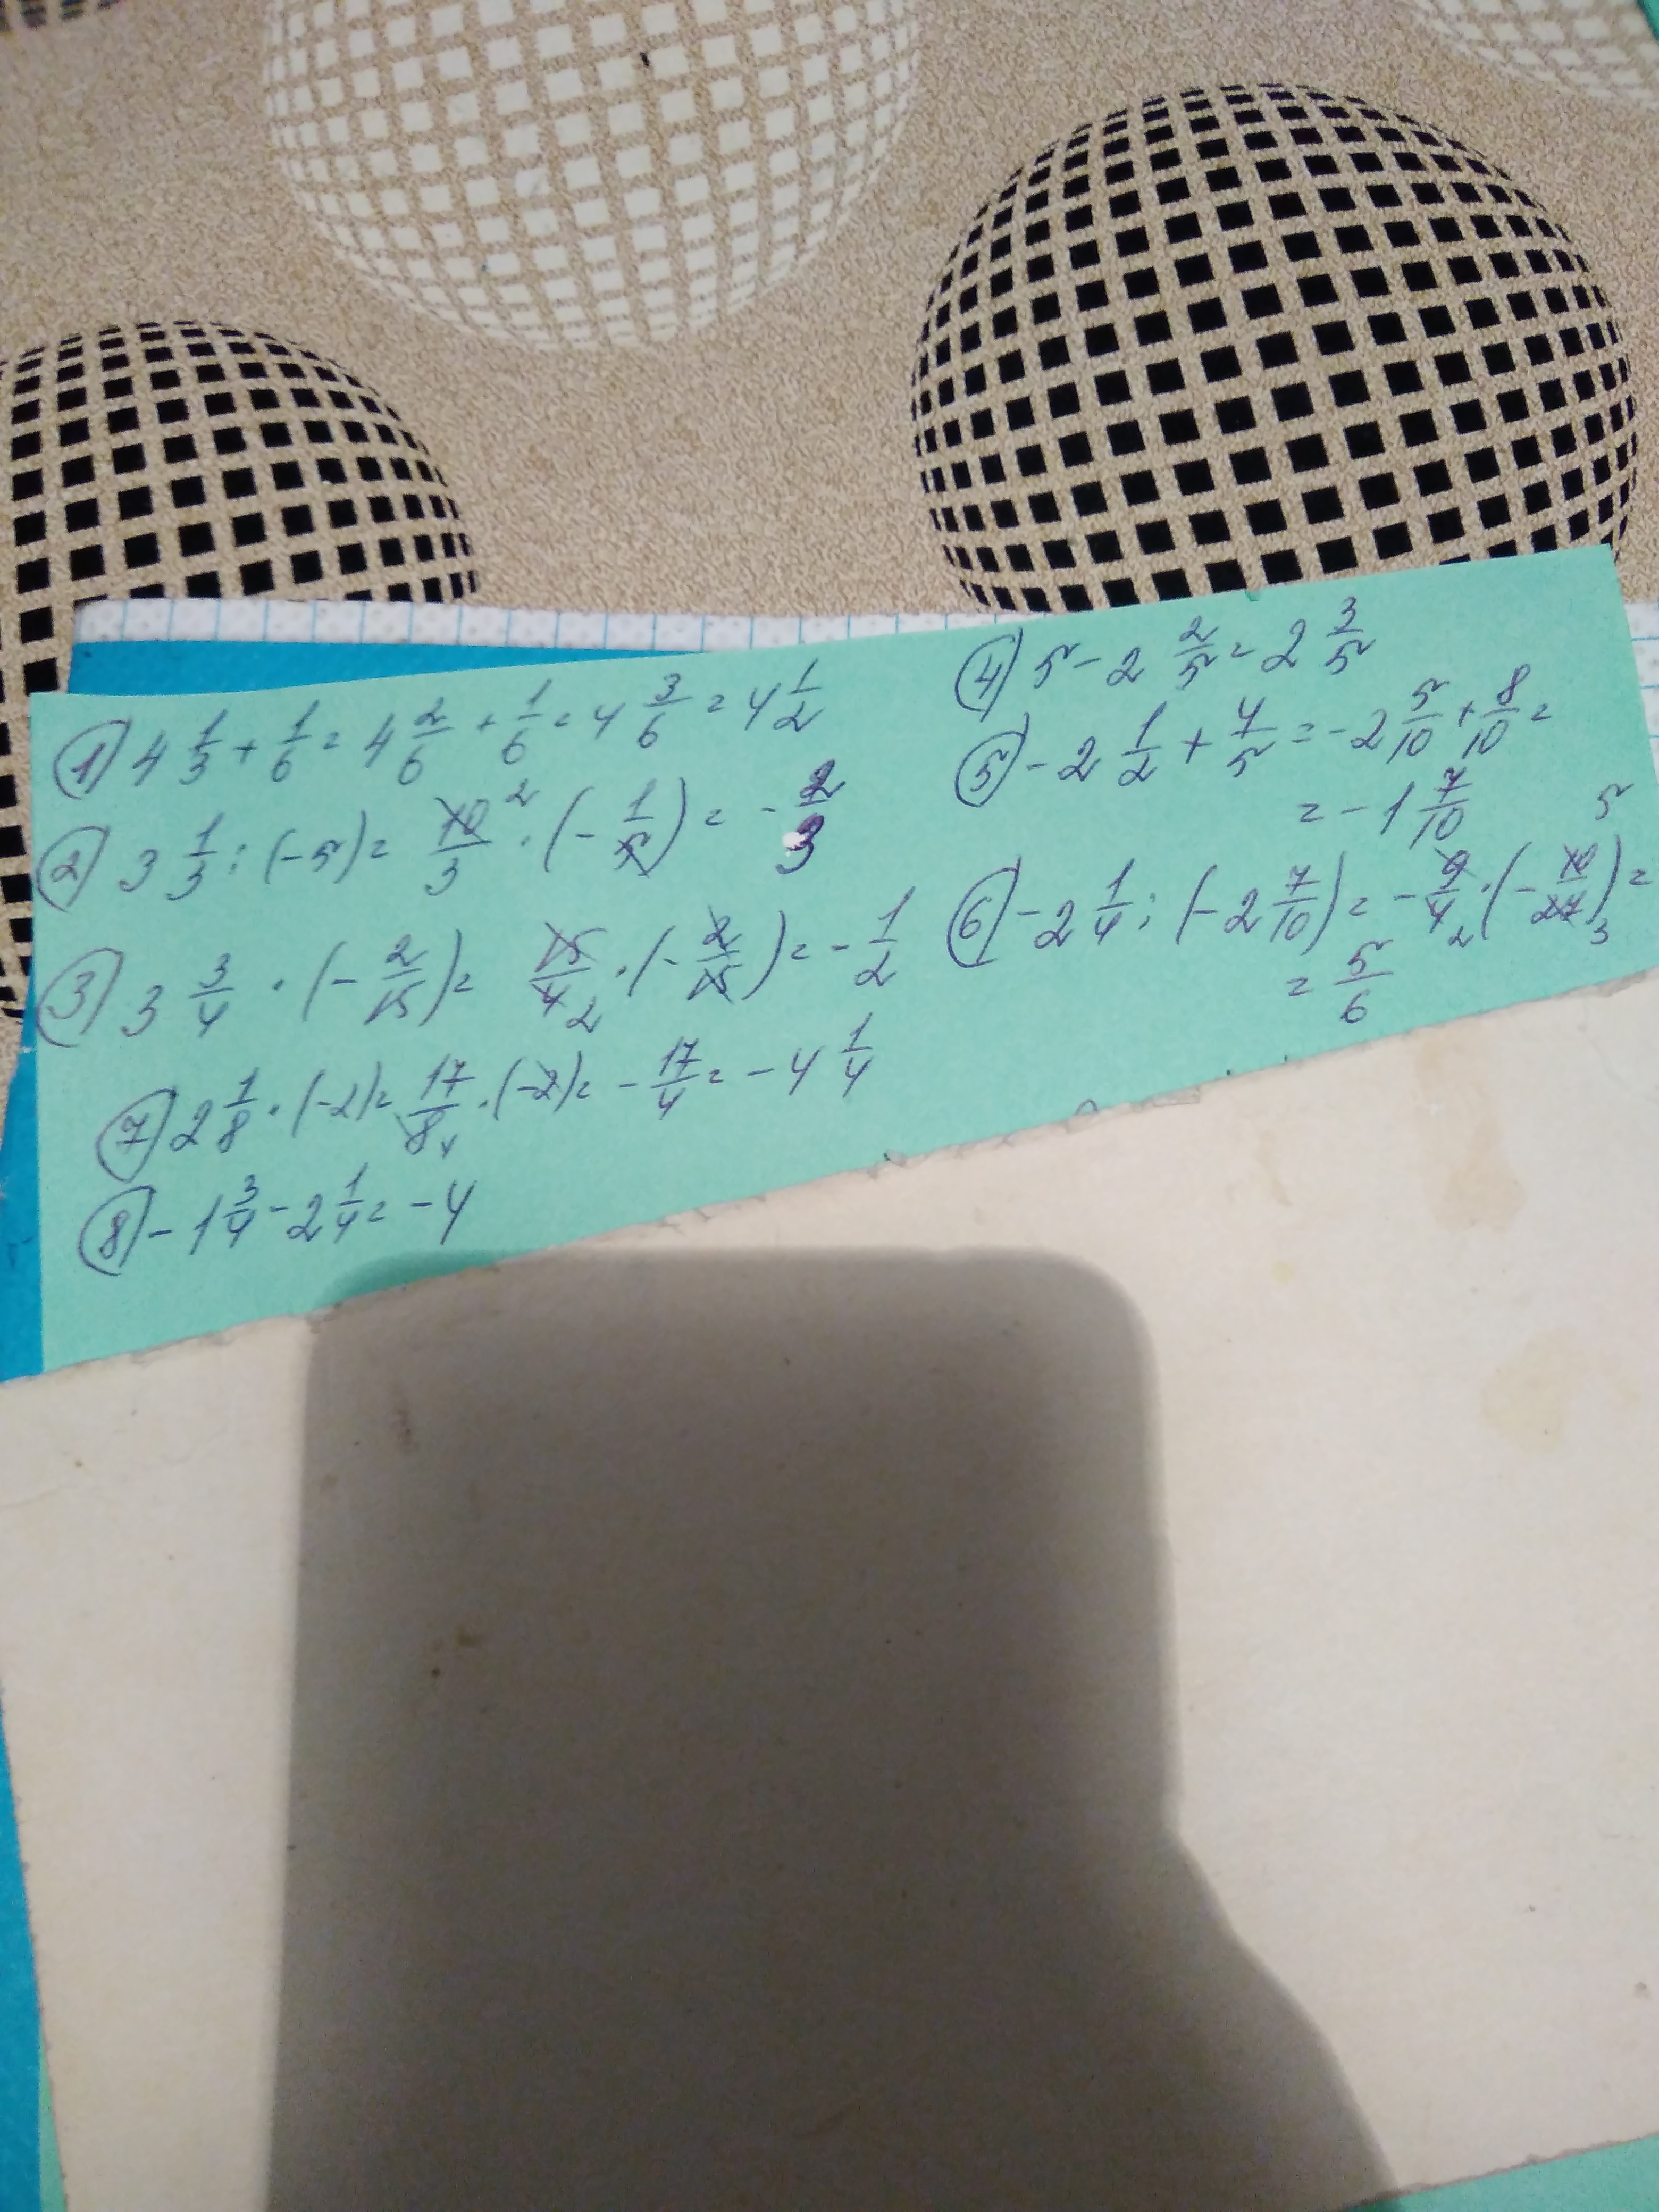 ① 4 1/3 + 1/6 = 4 2/6 + 1/6 = 4 3/6 = 4 1/2
② 3 1/3 : (-5) = 10/3 2 · (- 1/5) = - 2/3
③ 3 3/4 · (- 2/15) = 15/4 2 · (- 2/15) = - 1/2
⑦ 2 1/8 · (-2) = 17/8 4 · (-2) = - 17/4 = - 4 1/4
⑧ - 1 3/4 - 2 1/4 = - 4
④ 5 - 2 2/5 = 2 3/5
⑤ - 2 1/2 + 4/5 = - 2 5/10 + 8/10 =
= - 1 7/10
⑥ - 2 1/4 : (- 2 7/10) = - 9/4 2 · (- 10/27 3) = 5
= 5/6